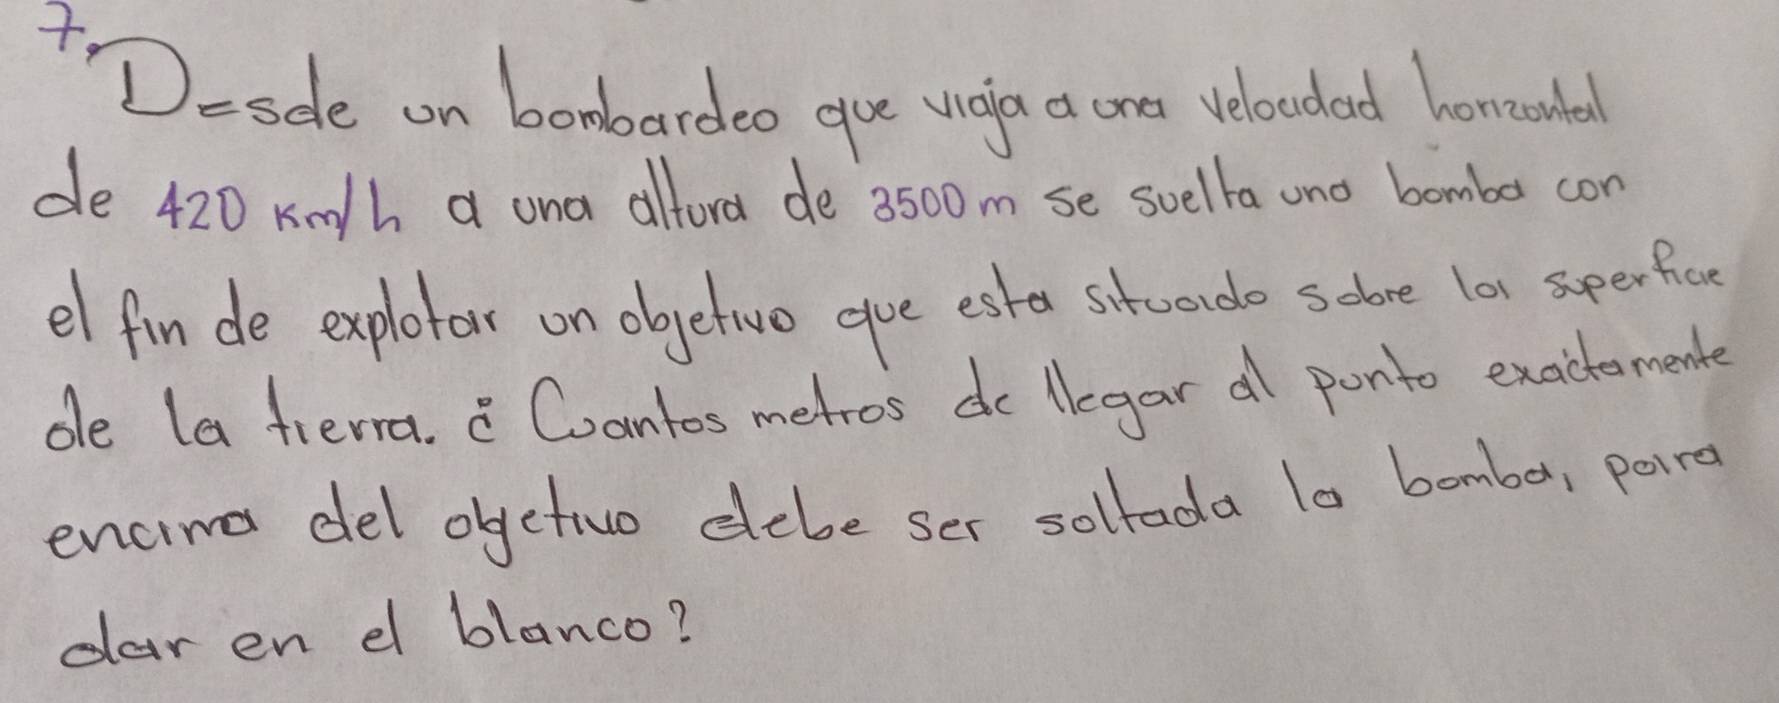 7. Desde un bombardeo que viaja a una velocidad horizontal
de 420 Km/h a una altura de 3500 m se suelta una bomba con
el fin de explotar un objetivo que esta situado sobre la superficie
de la tierra. ¿ Cuantos metros de llegar al punto exactamente
encima del objetivo debe ser soltada la bomba, para
dar en el blanco?